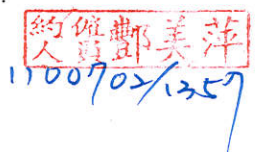 約僱人員酆美萍
1100702/1357